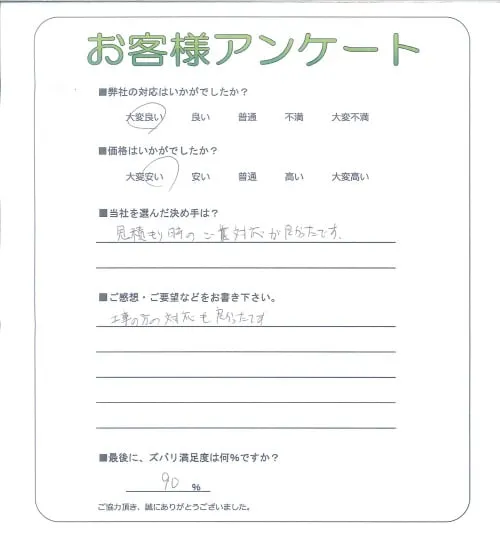 お客様アンケート
■弊社の対応はいかがでしたか？
大変良い 良い 普通 不満 大変不満
■価格はいかがでしたか？
大変安い 安い 普通 高い 大変高い
■当社を選んだ決め手は？
見積もり時の 対応が良かったです.
■ご感想・ご要望などをお書き下さい。
工事の方の対応も良かったです
■最後に、ズバリ満足度は何％ですか？
90 ％
ご協力頂き、誠にありがとうございました。